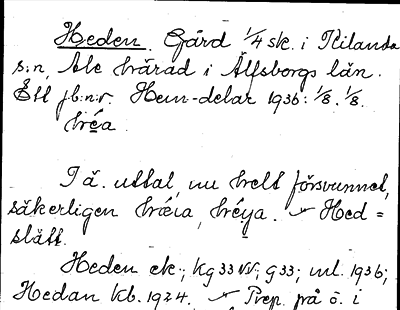 Heden. Gård 1/4 sk. i Kilanda
s:n, Ale härad i Älfsborgs län.
Ett jb:n:r. Hem-delar 1936: 1/8. 1/8.
hę́a.
I ä. uttal, nu helt försvunnet,
säkerligen hǽia, hę́ya. Hed =
slätt.
Heden ek.; kg 33 NV; g 33; ml. 1936;
Hedan kb. 1924. Prep. på ö. i